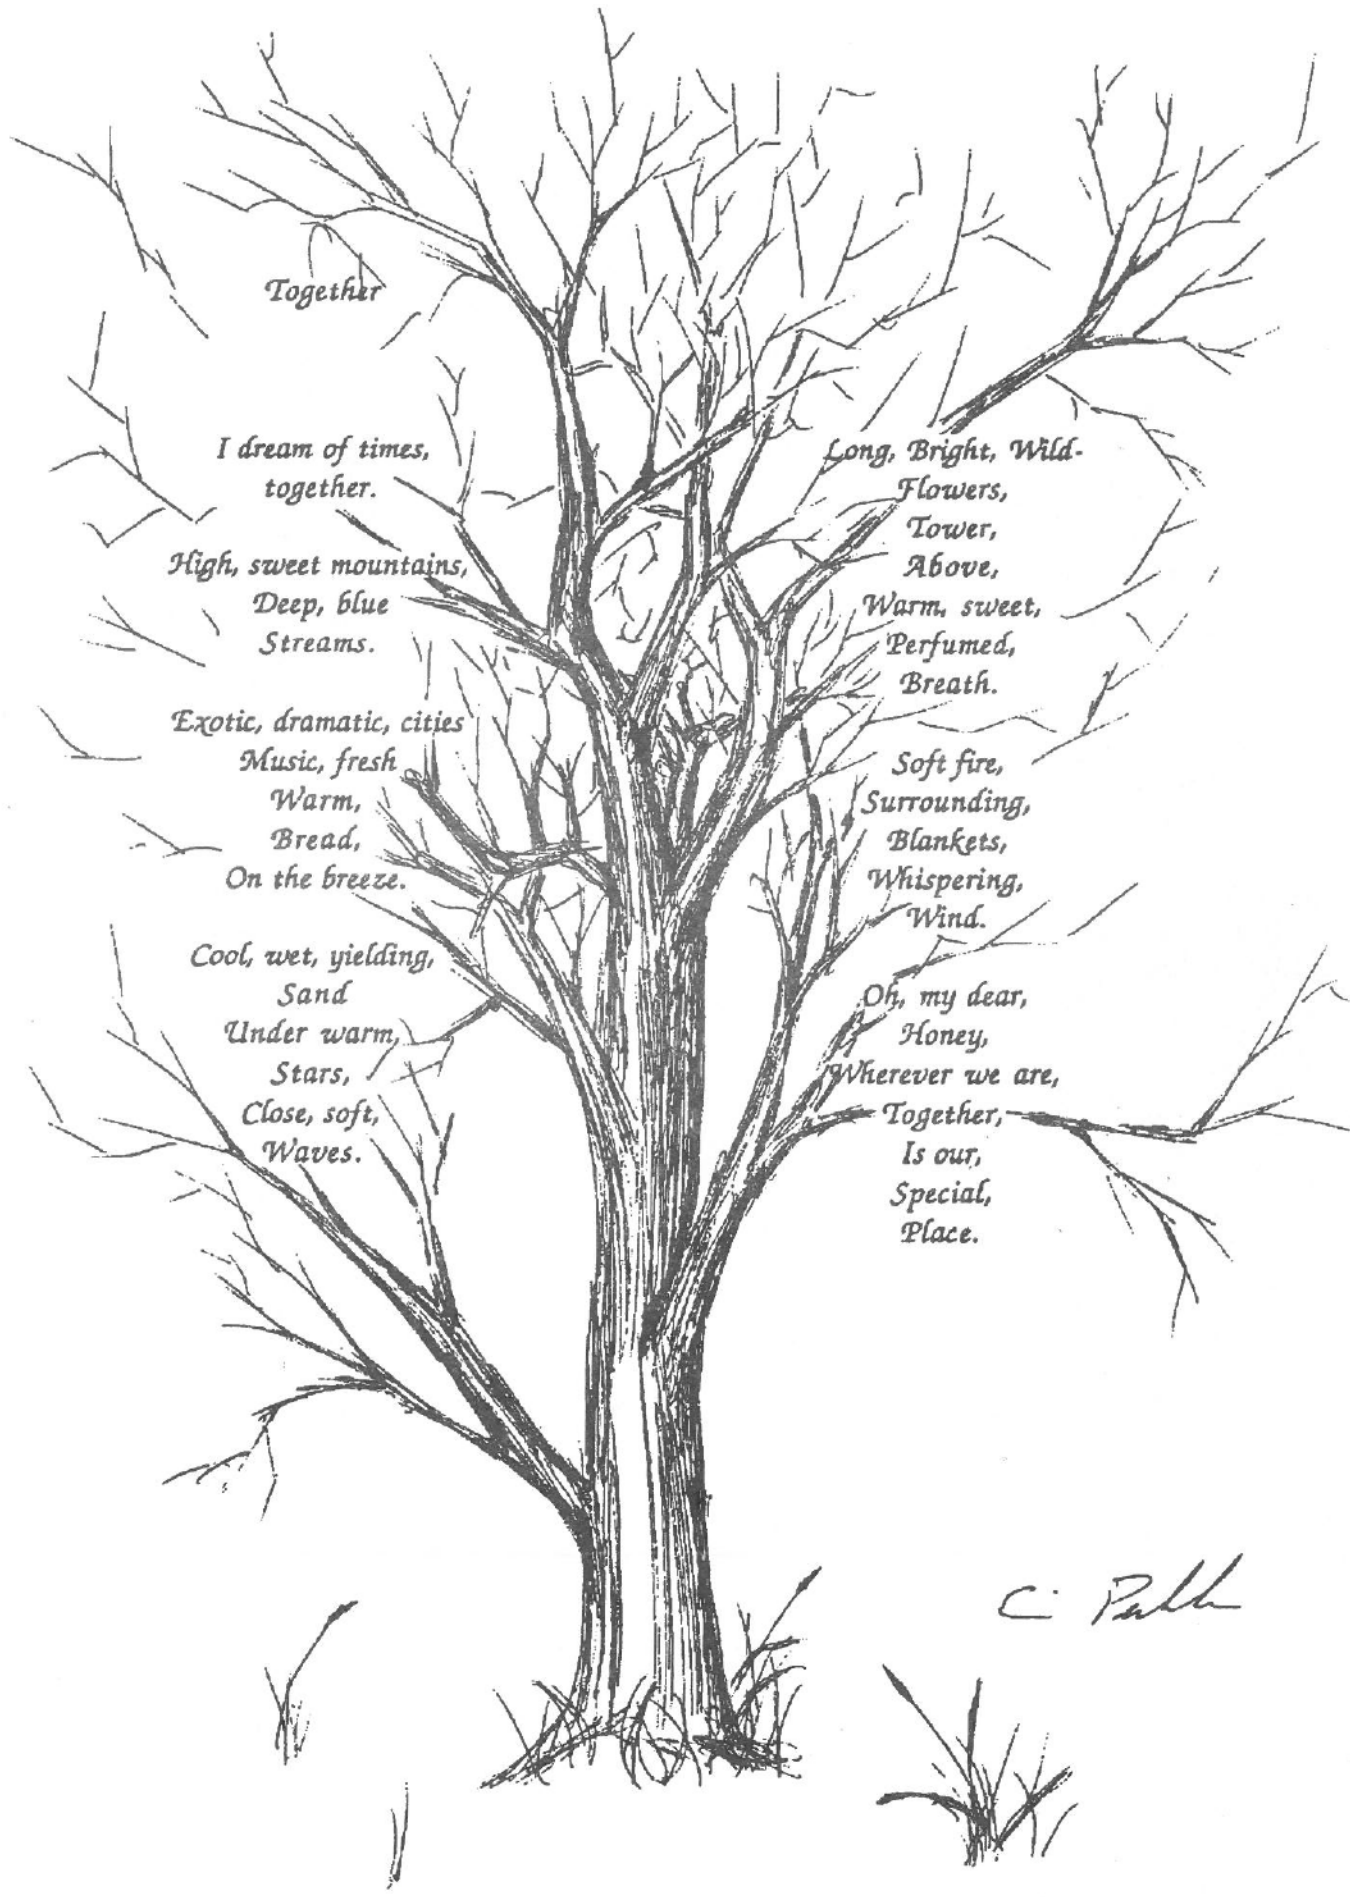 Together
I dream of times,
together.
High, sweet mountains,
Deep, blue
Streams.
Exotic, dramatic, cities
Music, fresh
Warm,
Bread,
On the breeze.
Cool, wet, yielding,
Sand
Under warm,
Stars,
Close, soft,
Waves.
Long, Bright, Wild-
Flowers,
Tower,
Above,
Warm, sweet,
Perfumed,
Breath.
Soft fire,
Surrounding,
Blankets,
Whispering,
Wind.
Oh, my dear,
Honey,
Wherever we are,
Together,
Is our,
Special,
Place.